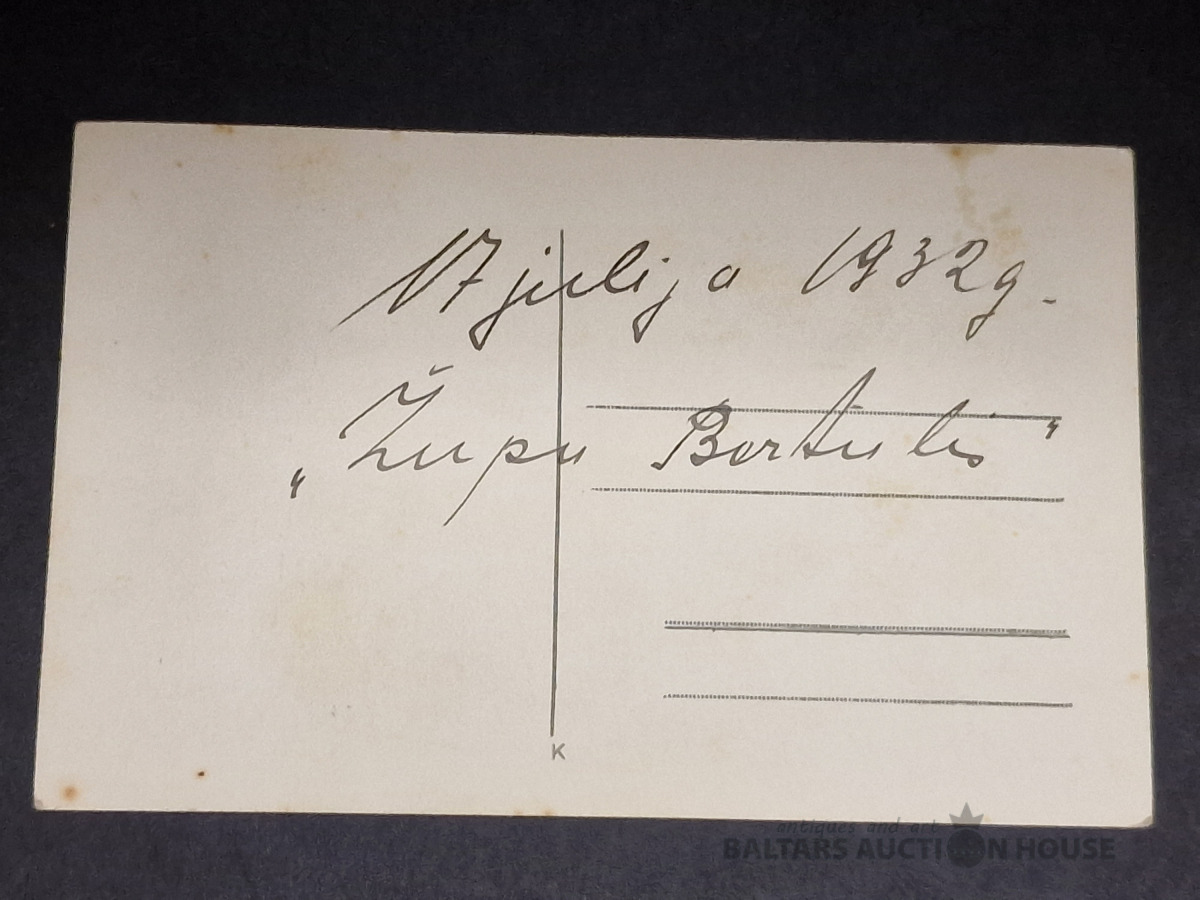 17 julija 1932g.
„Župu Bertulis"
K
antiques and art
BALTARS AUCTION HOUSE